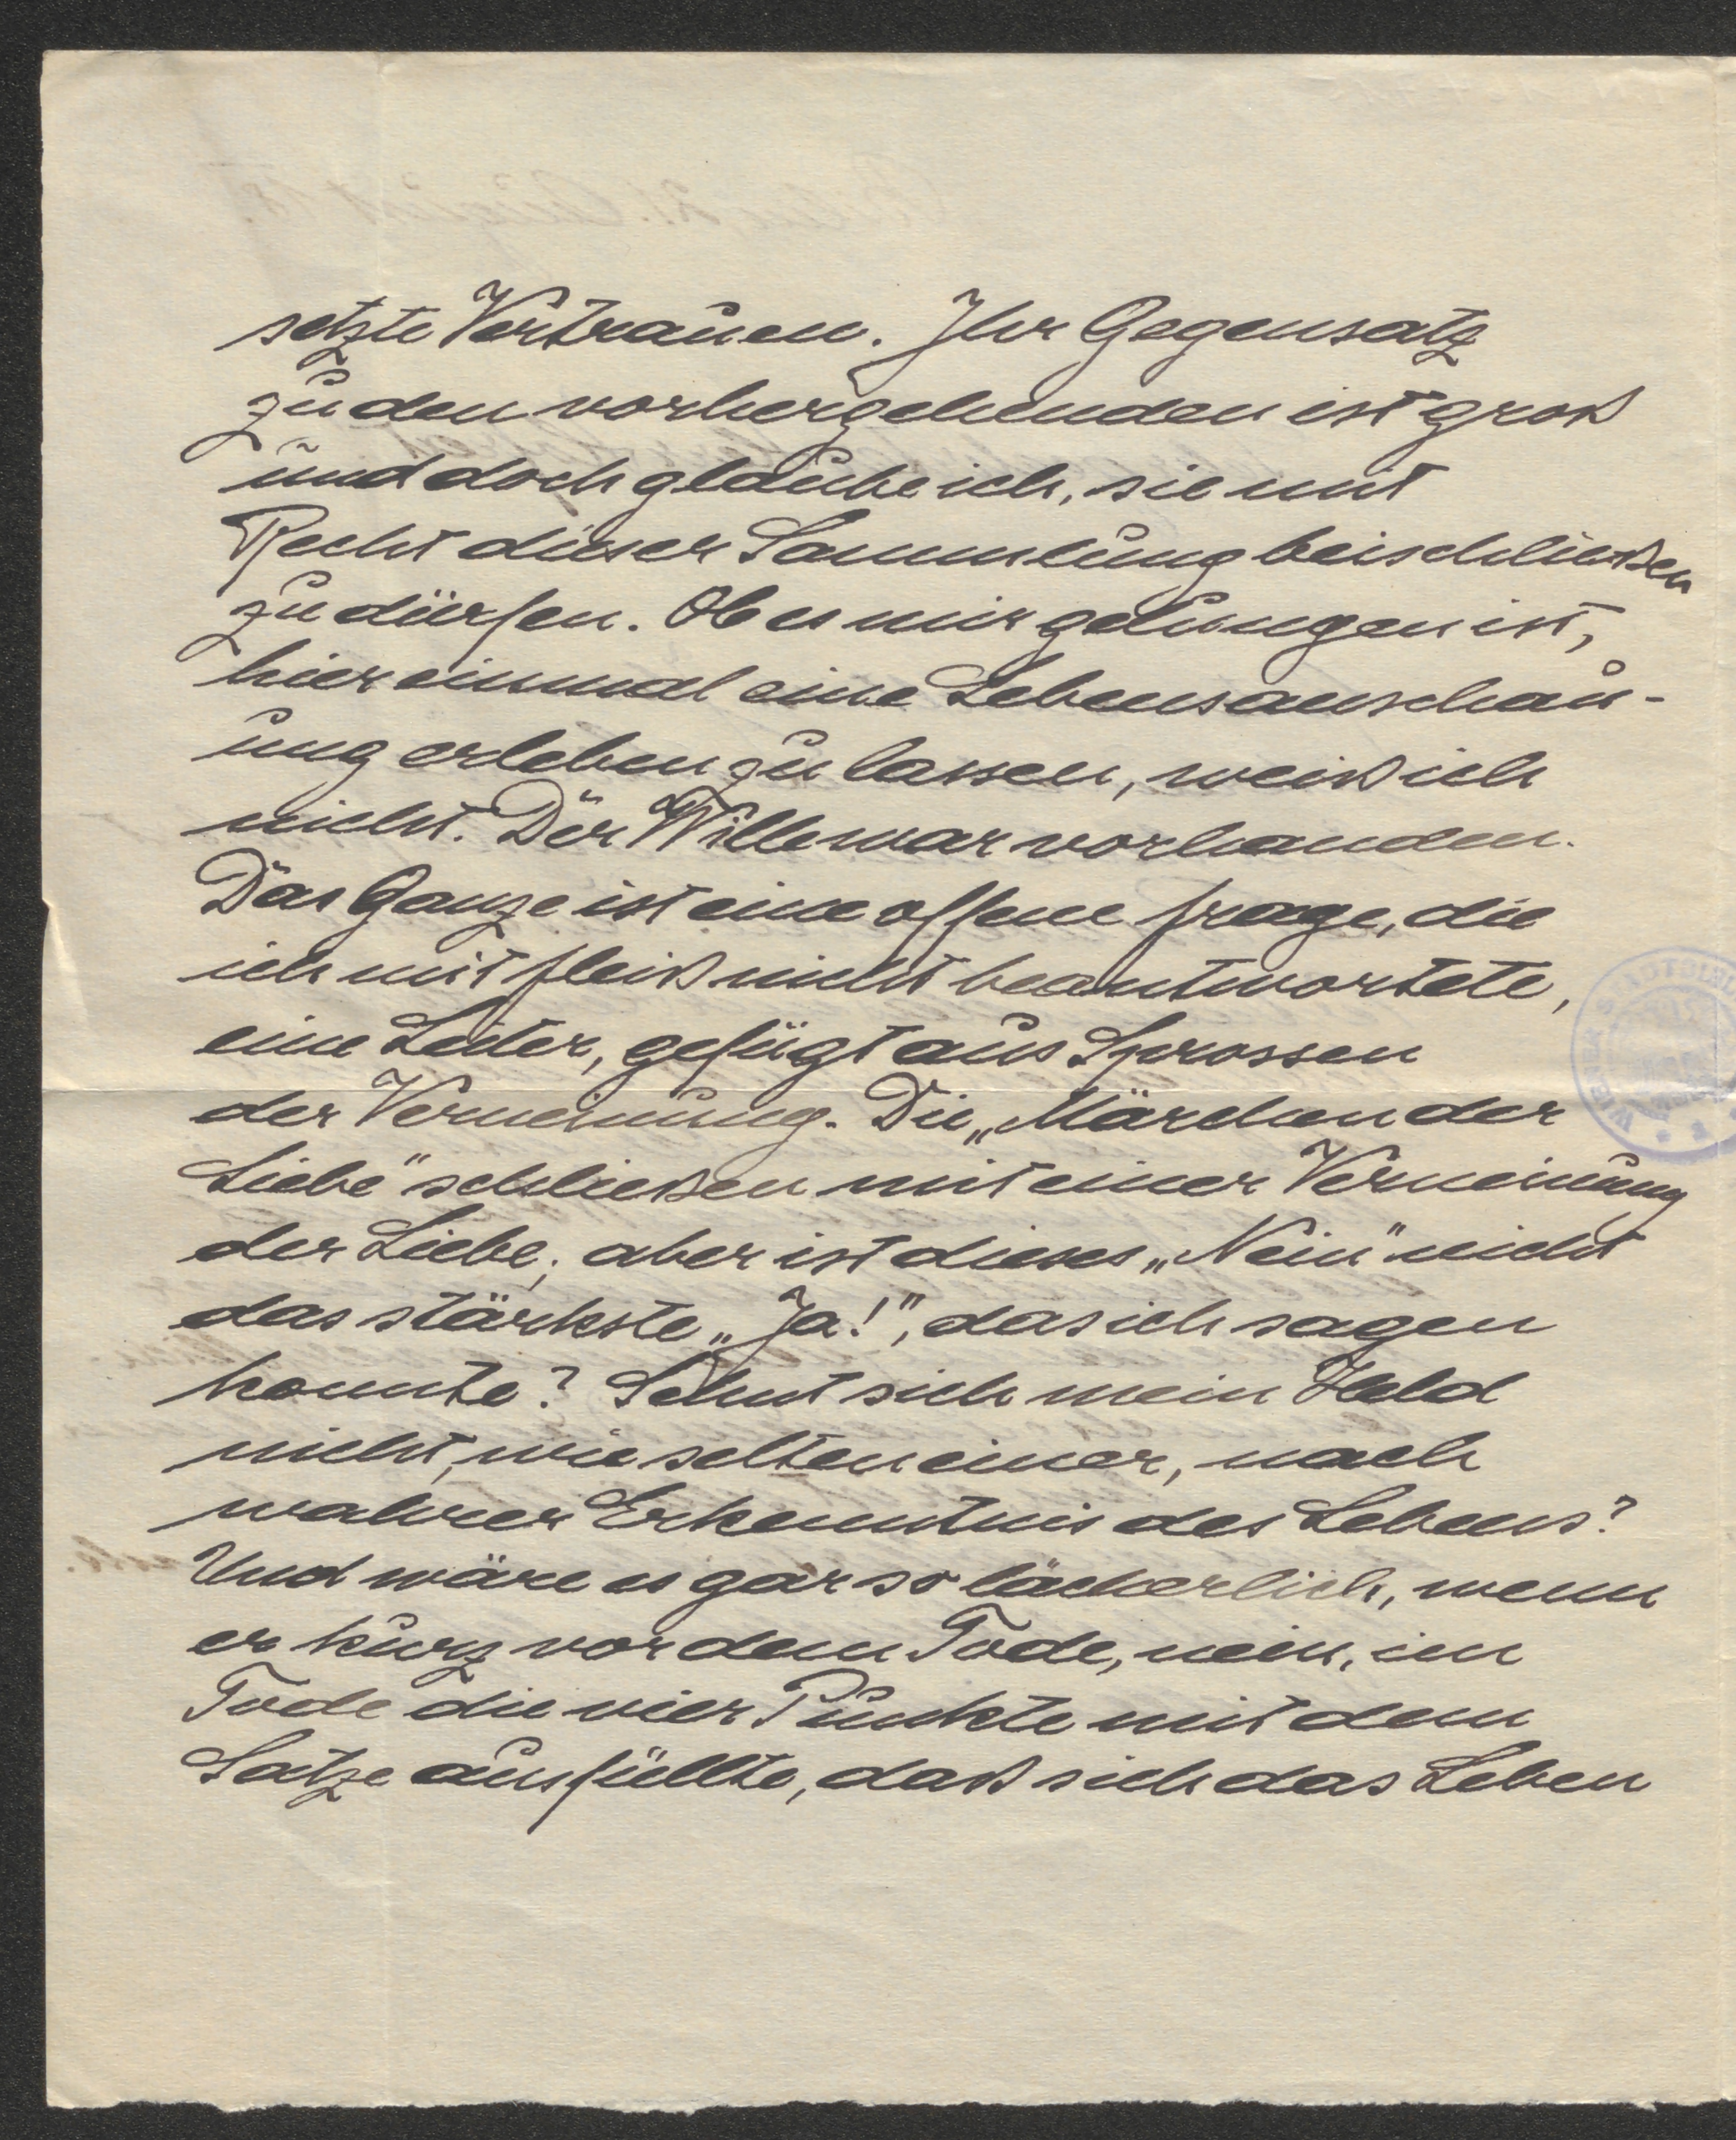 setzte Vertrauen. Ihr Gegensatz
zu den vorhergehenden ist groß
und doch glaube ich, sie mit
Recht dieser Sammlung beischließen
zu dürfen. Ob es mir gelungen ist,
hier einmal eine Lebensanschau-
ung erleben zu lassen, weiß ich
nicht. Der Wille war vorhanden.
Das Ganze ist eine offene Frage, die
ich mit Fleiß nicht beantwortete,
eine Leiter, gefügt aus Sprossen
der Verneinung. Die „Märchen der
Liebe" schließen mit einer Verneinung
der Liebe; aber ist dieses „Nein" nicht
das stärkste „Ja!", das ich sagen
konnte? Sehnt sich mein Held
nicht, wie selten einer, nach
wahrer Erkenntnis des Lebens?
Und wäre es gar so lächerlich, wenn
er kurz vor dem Tode, nein, im
Tode die vier Punkte mit dem
Satze ausfüllte, daß sich das Leben